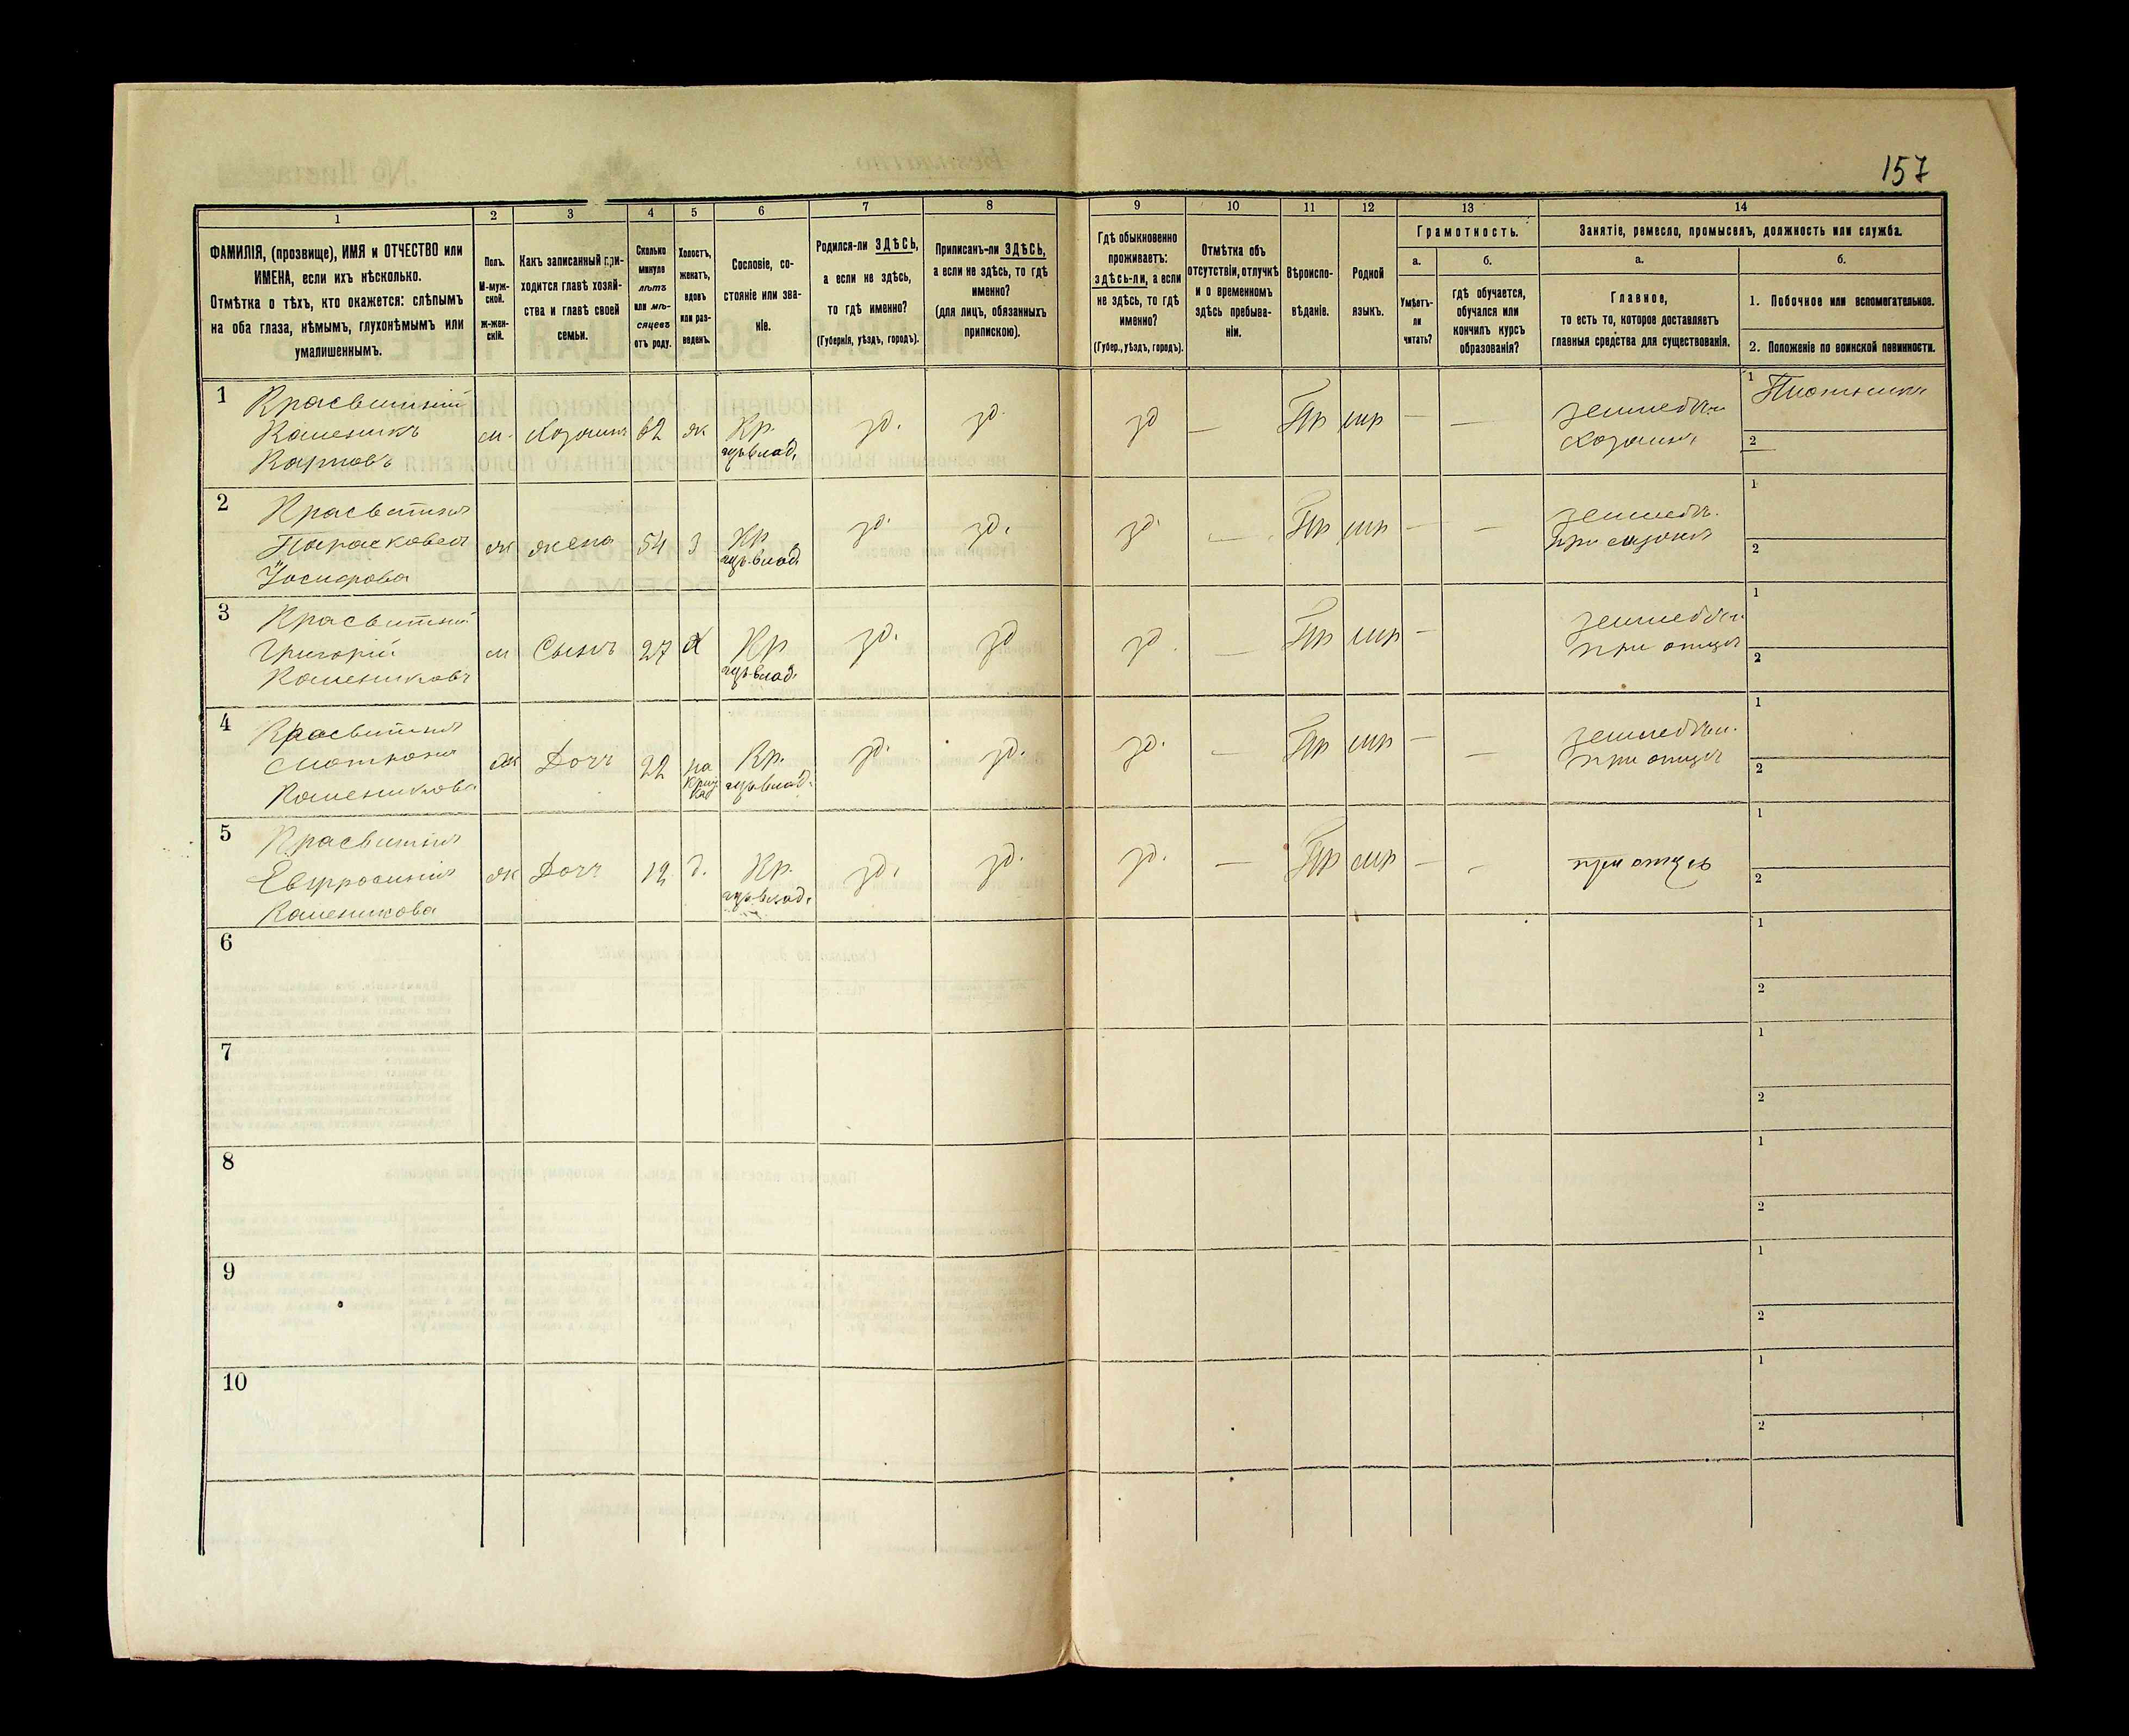 157
1 2 3 4 5 6 7 8 9 10 11 12 13 14
ФАМИЛІЯ, (прозвище), ИМЯ и ОТЧЕСТВО или
ИМЕНА, если ихъ нѣсколько.
Отмѣтка о тѣхъ, кто окажется: слѣпымъ
на оба глаза, нѣмымъ, глухонѣмымъ или
умалишеннымъ.
Полъ.
М-муж-
ской.
ж-жен-
скій.
Какъ записанный при-
ходится главѣ хозяй-
ства и главѣ своей
семьи.
Сколько
минуло
лѣтъ
или мѣ-
сяцевъ
отъ роду.
Холостъ,
женатъ,
вдовъ
или раз-
веденъ.
Сословіе, со-
стояніе или зва-
ніе.
Родился-ли ЗДѢСЬ,
а если не здѣсь,
то гдѣ именно?
(Губернія, уѣздъ, городъ).
Приписанъ-ли ЗДѢСЬ,
а если не здѣсь, то гдѣ
именно?
(для лицъ, обязанныхъ
припискою).
Гдѣ обыкновенно
проживаетъ:
здѣсь-ли, а если
не здѣсь, то гдѣ
именно?
(Губер., уѣздъ, городъ).
Отмѣтка объ
отсутствіи, отлучкѣ
и о временномъ
здѣсь пребыва-
ніи.
Вѣроиспо-
вѣданіе.
Родной
языкъ.
Грамотность.
а.
Умѣетъ-
ли
читать?
б.
гдѣ обучается,
обучался или
кончилъ курсъ
образованія?
Занятіе, ремесло, промыселъ, должность или служба.
а.
Главное,
то есть то, которое доставляетъ
главныя средства для существованія.
б.
1. Побочное или вспомогательное.
2. Положеніе по воинской повинности.
1
Красвитній
Каленикъ
Карповъ
м. Хозяинъ 62 ж Кр.
зд. зд. зд — Пр мр — —
хозяинъ
1
2
2
Красвитня
Парасковея
ж жена 54 з Кр
зд. зд. зд. — Пр мр — —
1
2
3
Красвитній
Григорій
Калениковъ
м Сынъ 27 х Кр
зд. зд зд. — Пр мр —
при отцѣ
1
2
4
Красвитня
Мотрона
Каленикова
ж Дочь 22 Кр.
зд. зд. зд. — Пр мр — —
при отцѣ
1
2
5
Красвитня
Евфросинія
Каленикова
ж Дочь 12 д. Кр.
зд. зд. зд. — Пр мр — —
при отцѣ
1
2
6
1
2
7
1
2
8
1
2
9
1
2
10
1
2